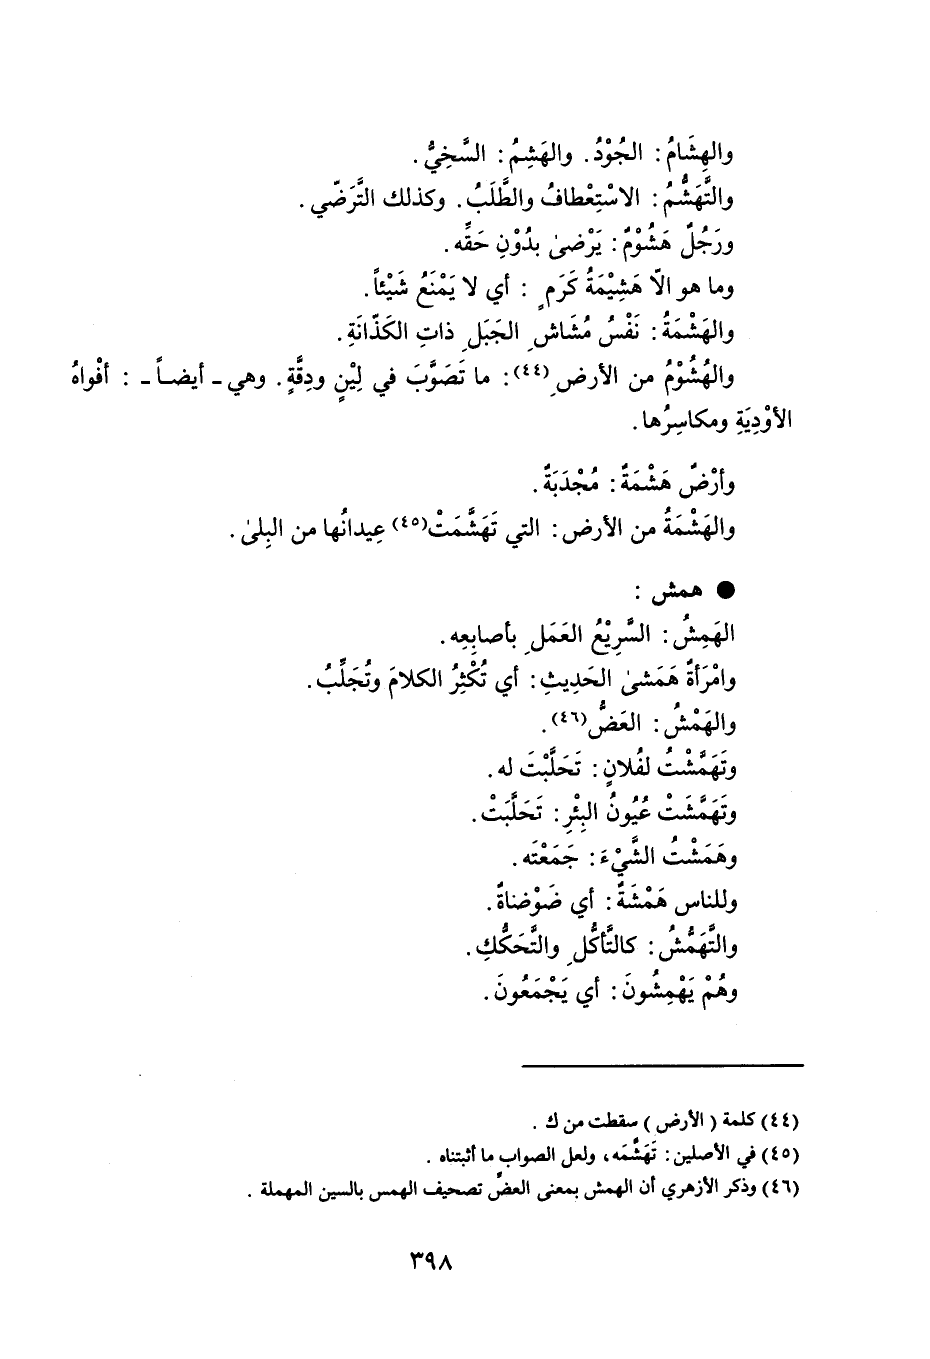 والهِشَامُ : الجُوْدُ. والهَشِمُ : السَّخِيُّ .
والتَّهَشُّمُ : الاسْتِعْطافُ والطَّلَبُ. وكذلك التَّرَضّي .
ورَجُلٌ هَشُوْمٌ : يَرْضىٰ بدُوْنِ حَقِّه .
وما هو الّا هَشِيْمَةُ كَرَمٍ : أي لا يَمْنَعُ شَيْئاً.
والهَشْمَةُ : نَفْسُ مُشَاشِ الجَبَلِ ذاتِ الكَذّانَةِ.
والهُشُوْمُ من الأرضِ(٤٤) : ما تَصَوَّبَ في لِيْنٍ ودِقَّةٍ. وهي ـ أيضاً ـ : أفْواهُ
الأوْدِيَةِ ومكاسِرُها.
وأرْضٌ هَشْمَةٌ : مُجْدَبَةٌ.
والهَشْمَةُ من الأرض : التي تَهَشَّمَتْ(٤٥) عِيدانُها من البِلىٰ.
● همش :
الهَمِشُ : السَّرِيْعُ العَمَلِ بأصابِعِه.
وامْرَأةٌ هَمَشىٰ الحَدِيثِ : أي تُكْثِرُ الكلامَ وتُجَلِّبُ.
والهَمْشُ : العَضُّ(٤٦).
وتَهَمَّشْتُ لفُلانٍ : تَحَلَّبْتَ له.
وتَهَمَّشَتْ عُيُونُ البِئْرِ : تَحَلَّبَتْ.
وهَمَشْتُ الشَّيْءَ : جَمَعْتَه.
وللناس هَمْشَةٌ : أي ضَوْضاةٌ.
والتَّهَمُّشُ : كالتَّأكُّلِ والتَّحَكُّكِ.
وهُمْ يَهْمِشُونَ : أي يَجْمَعُونَ.
(٤٤) كلمة ( الأرض ) سقطت من ك .
(٤٥) في الأصلين : تَهَشَّمَه، ولعل الصواب ما أثبتناه .
(٤٦) وذكر الأزهري أن الهمش بمعنى العضّ تصحيف الهمس بالسين المهملة .
٣٩٨